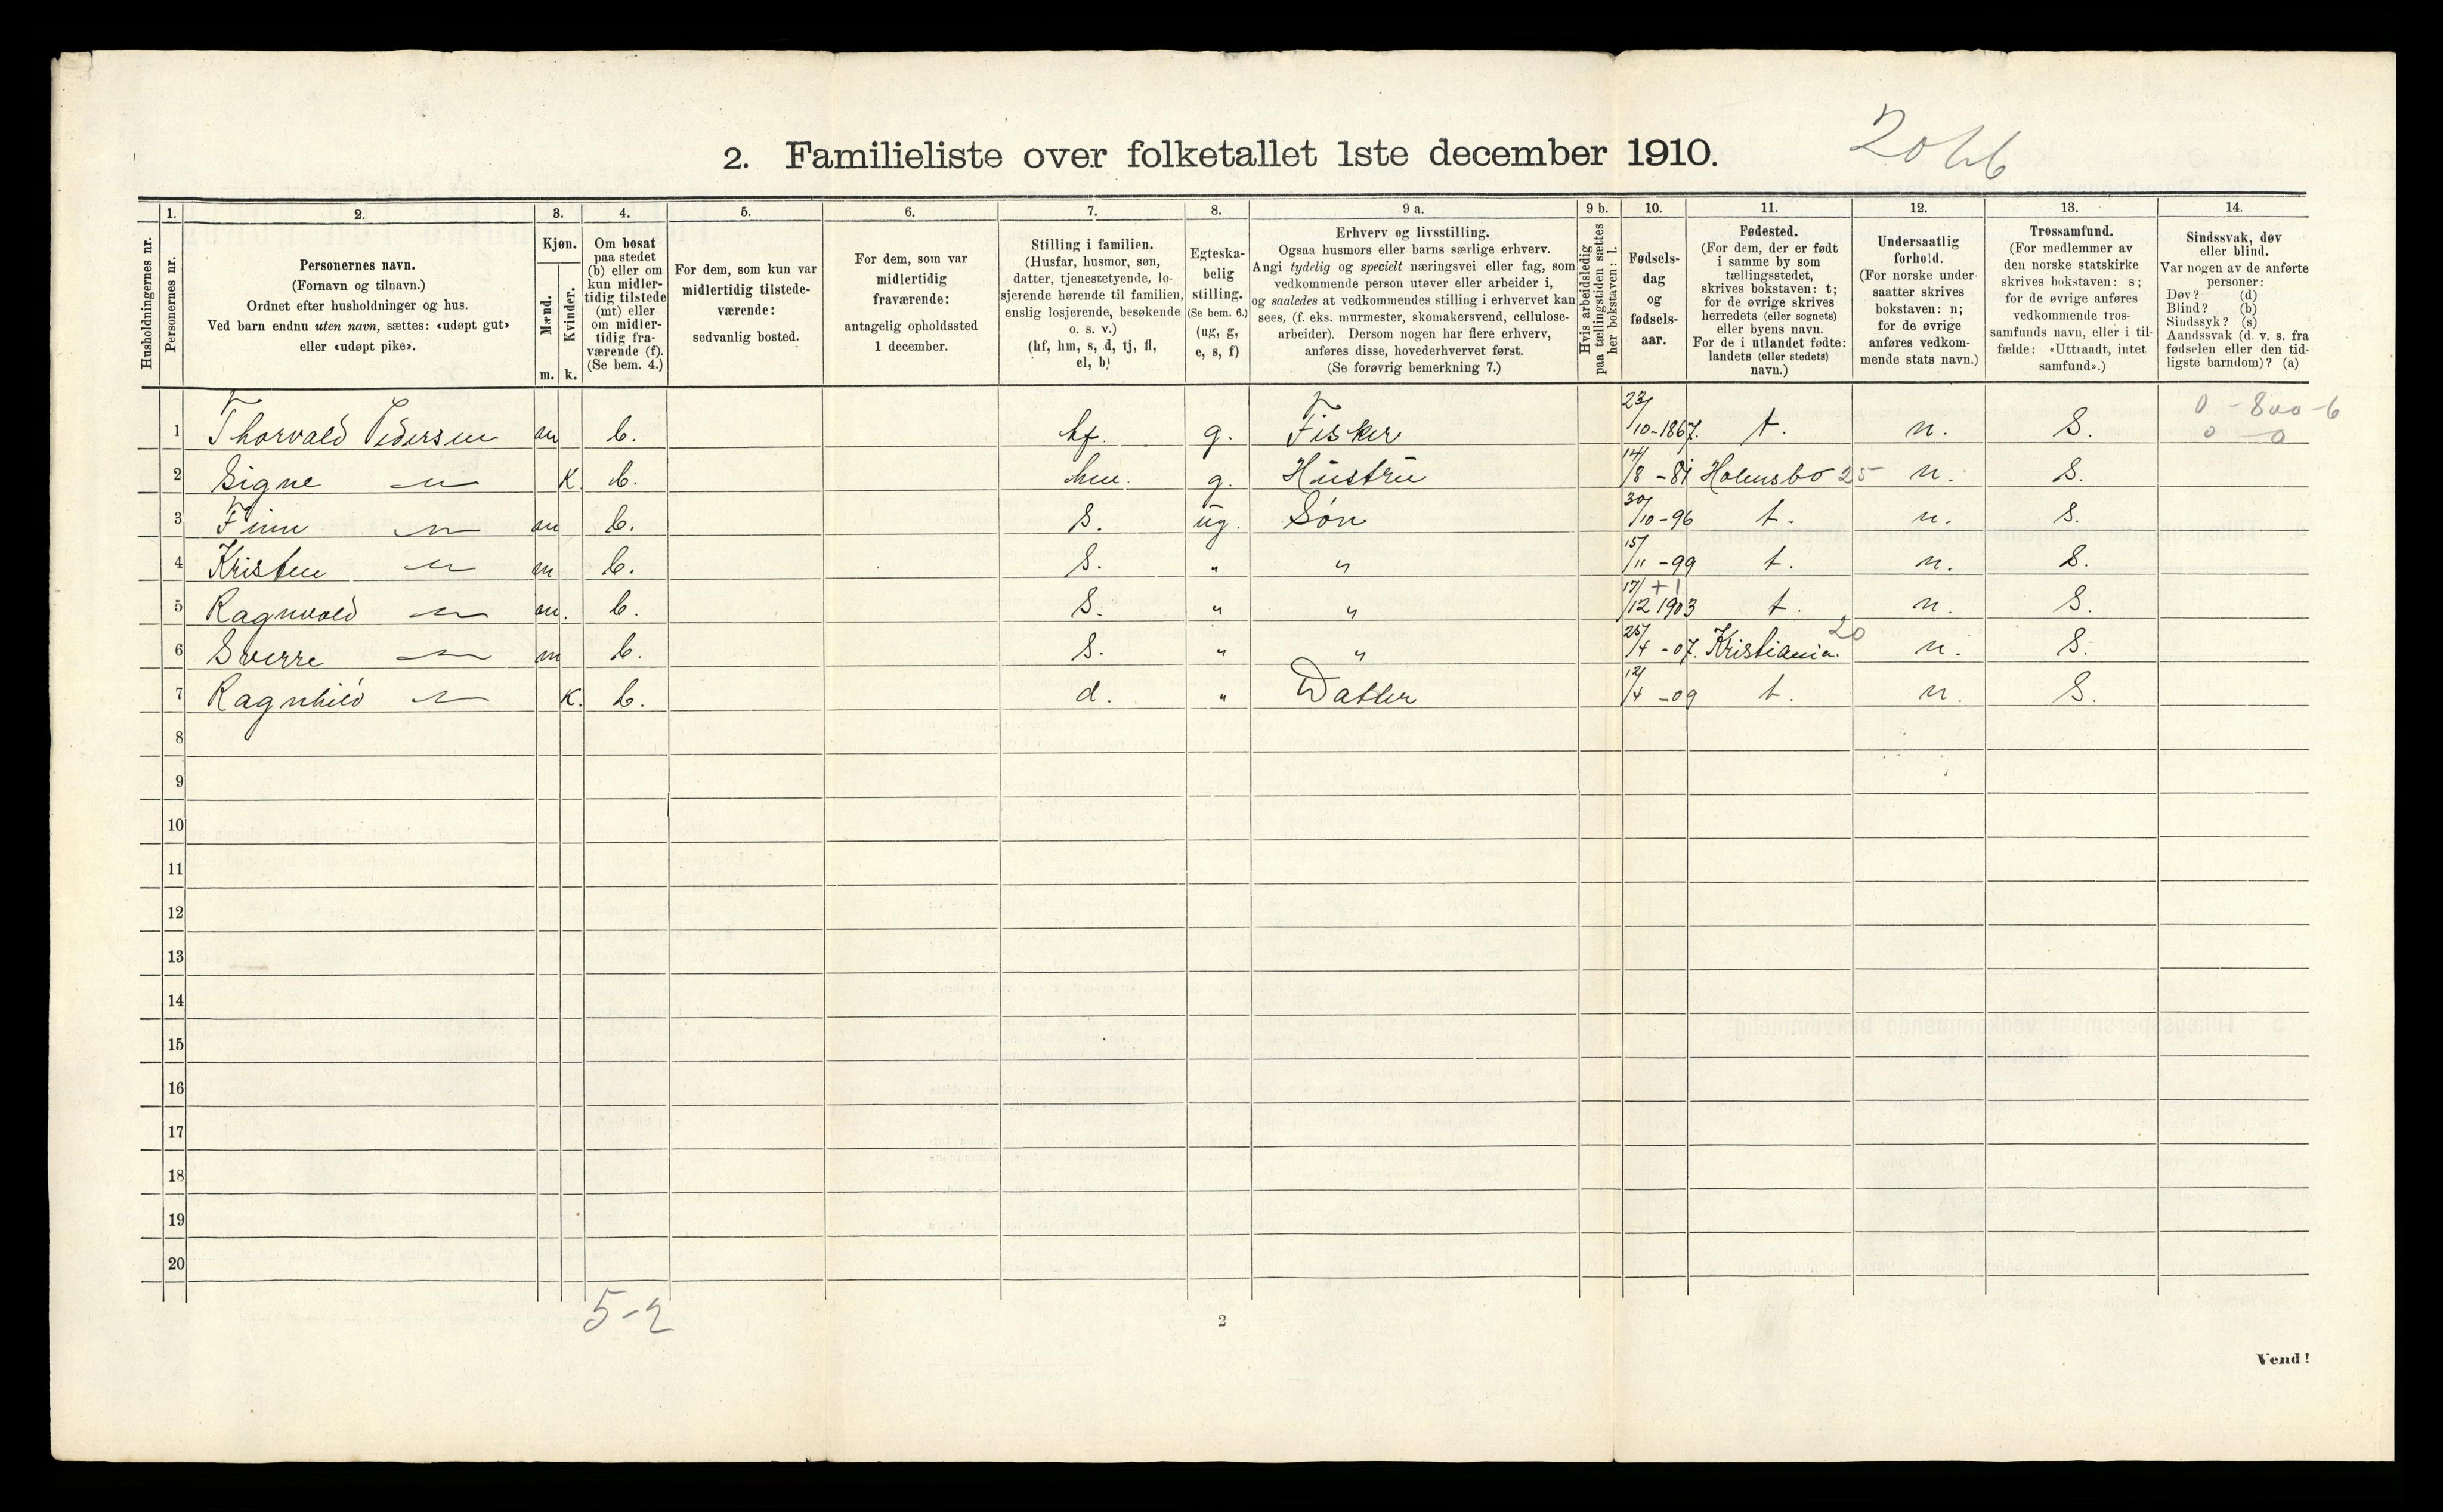 2. Familieliste over folketallet 1ste december 1910.
Husholdningernes nr.
1.
Personernes nr.
2.
Personernes navn.
(Fornavn og tilnavn.)
Ordnet efter husholdninger og hus.
Ved barn endnu uten navn, sættes: «udøpt gut»
eller «udøpt pike».
3.
Kjøn.
Mænd.
Kvinder.
m. k.
4.
Om bosat
paa stedet
(b) eller om
kun midler-
tidig tilstede
(mt) eller
om midler-
tidig fra-
værende (f).
(Se bem. 4.)
5.
For dem, som kun var
midlertidig tilstede-
værende:
sedvanlig bosted.
6.
For dem, som var
midlertidig
fraværende:
antagelig opholdssted
1 december.
7.
Stilling i familien.
(Husfar, husmor, søn,
datter, tjenestetyende, lo-
sjerende hørende til familien,
enslig losjerende, besøkende
o. s. v.)
(hf, hm, s, d, tj, fl,
el, b)
8.
Egteska-
belig
stilling.
(Se bem. 6.)
(ug, g,
e, s, f)
9 a.
Erhverv og livsstilling.
Ogsaa husmors eller barns særlige erhverv.
Angi tydelig og specielt næringsvei eller fag, som
vedkommende person utøver eller arbeider i,
og saaledes at vedkommendes stilling i erhvervet kan
sees, (f. eks. murmester, skomakersvend, cellulose-
arbeider). Dersom nogen har flere erhverv,
anføres disse, hovederhvervet først.
(Se forøvrig bemerkning 7.)
9 b.
Hvis arbeidsledig
paa tællingstiden sættes
her bokstaven: l.
10.
Fødsels-
dag
og
fødsels-
aar.
11.
Fødested.
(For dem, der er født
i samme by som
tællingsstedet,
skrives bokstaven: t;
for de øvrige skrives
herredets (eller sognets)
eller byens navn.
For de i utlandet fødte:
landets (eller stedets)
navn.)
12.
Undersaatlig
forhold.
(For norske under-
saatter skrives
bokstaven: n;
for de øvrige
anføres vedkom-
mende stats navn.)
13.
Trossamfund.
(For medlemmer av
den norske statskirke
skrives bokstaven: s;
for de øvrige anføres
vedkommende tros-
samfunds navn, eller i til-
fælde: «Uttraadt, intet
samfund».)
14.
Sindssvak, døv
eller blind.
Var nogen av de anførte
personer:
Døv? (d)
Blind? (b)
Sindssyk? (s)
Aandssvak (d. v. s. fra
fødselen eller den tid-
ligste barndom)? (a)
0 - 800 - 6
0 0
1 Thorvald Pedersen m b. hf. g. Fisker 23/10-1867. t. n. S.
2 Signe — K. b. hm. g. Hustru 14/8 - 81 Holmsbo 25 n. S.
3 Finn — m b. S. ug. Søn 30/10-96 t. n. S.
4 Kristen — m b. S. " " 15/11 -99 t. n. S.
5 Ragnvald — m. b. S. " " 17/12 1903 +1 t. n. S.
6 Sverre — m b. S. " " 25/4 -07. Kristiania. 20 n. S.
7 Ragnhild — K. b. d. " Datter 12/4 -09 t. n. S.
8
9
10
11
12
13
14
15
16
17
18
19
20
5-2
2
Vend!